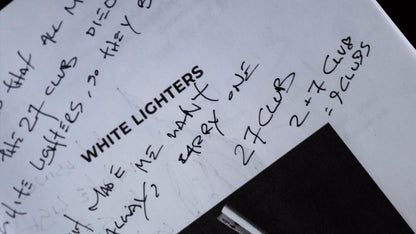 THAT ALL M
THE 27 CLUB DIED
WHITE LIGHTERS, SO THEY
WHITE LIGHTERS
MADE ME WANT
ALWAYS CARRY ONE
27 CLUB
2+7 CLUB
= 9 CLUBS